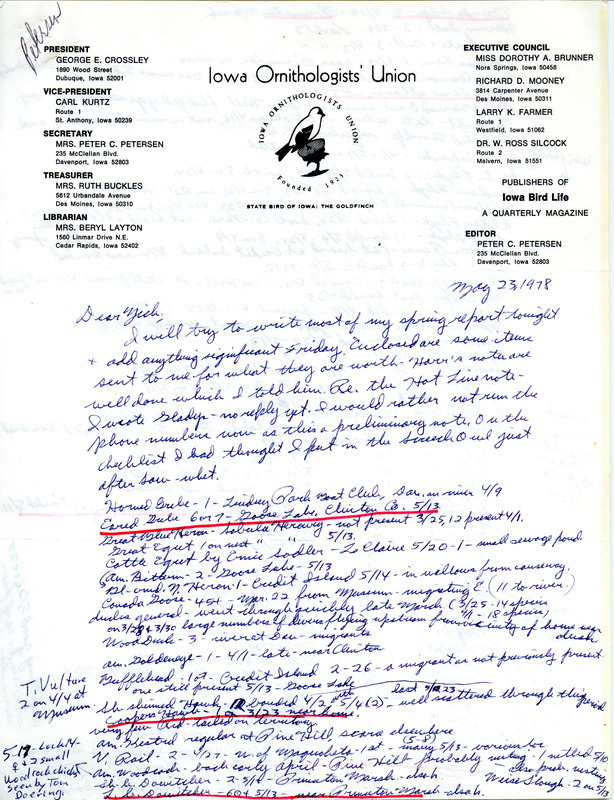 Petersen
PRESIDENT
GEORGE E. CROSSLEY
1890 Wood Street
Dubuque, Iowa 52001
VICE-PRESIDENT
CARL KURTZ
Route 1
St. Anthony, Iowa 50239
SECRETARY
MRS. PETER C. PETERSEN
235 McClellan Blvd.
Davenport, Iowa 52803
TREASURER
MRS. RUTH BUCKLES
5612 Urbandale Avenue
Des Moines, Iowa 50310
LIBRARIAN
MRS. BERYL LAYTON
1560 Linmar Drive N.E.
Cedar Rapids, Iowa 52402
Iowa Ornithologists' Union
IOWA ORNITHOLOGISTS UNION
Founded 1923
STATE BIRD OF IOWA: THE GOLDFINCH
EXECUTIVE COUNCIL
MISS DOROTHY A. BRUNNER
Nora Springs, Iowa 50458
RICHARD D. MOONEY
3814 Carpenter Avenue
Des Moines, Iowa 50311
LARRY K. FARMER
Route 1
Westfield, Iowa 51062
DR. W. ROSS SILCOCK
Route 2
Malvern, Iowa 51551
PUBLISHERS OF
Iowa Bird Life
A QUARTERLY MAGAZINE
EDITOR
PETER C. PETERSEN
235 McClellan Blvd.
Davenport, Iowa 52803
May 23, 1978
Dear Nick,
I will try to write most of my spring report tonight
+ add anything significant Friday. Enclosed are some items
sent to me for what they are worth. Harr's notes are
well done which I told him. Re. the Hot Line note-
I wrote Gladys - no reply yet. I would rather not run the
phone numbers now as this a preliminary note. On the
checklist I had thought I put in the Screech Owl just
after Saw-whet.
Horned Grebe - 1 - Lindsay Park Boat Club, Dav. on river 4/9
Eared Grebe 6 or 7 - Goose Lake, Clinton Co. 5/13
Great Blue Heron - Sabula Heronry - not present 3/25, 12 present 4/1.
Great Egret 1 on nest " " 5/13.
Cattle Egret by Ernie Sadler - Le Claire 5/20 - 1 - small sewage pond
Am. Bittern - 2 - Goose Lake - 5/13
Bl. cnd. N. Heron 1 - Credit Island 5/14 - in willows from causeway.
Canada Goose - 45+ - Mar. 22 from Museum - migrating E. (11 to river)
ducks general - went through quickly late March (3/25 - 14 species
4/1 - 18 species)
on 3/28 + 3/30 large numbers of divers flying upstream from vicinity of home near
dusk
Wood Duck - 3 - river at Dav - migrants
Am. Goldeneye - 1 - 4/1 - late - near Clinton
Bufflehead - 1 - Credit Island 2-26 - a migrant as not previously present
one still present 5/13 - Goose Lake
T. Vulture
2 on 4/4 at
Museum.
Sh. shinned Hawk - banded 4/2 5/4 (2) - well scattered through this period
Coopers Hawk - 3/23 near home.
very few
Am. Kestrel regular at Pine Hill, scarce elsewhere
V. Rail - 2 - 4/27 - N of Maquoketa - 1st - many 5/13 - various loc
Am. Woodcock - back early April - Pine Hill probably nesting - 1 netted 5/10
Also prob. nesting
Wise Slough - 2 on 5/
sh. b. Dowitcher - 2 - 5/4 - Princeton Marsh
L. b. Dowitcher - 60 + 5/13 - near Princeton Marsh
5-17
♀ + 2 small
Woodcock chicks
seen by Tom